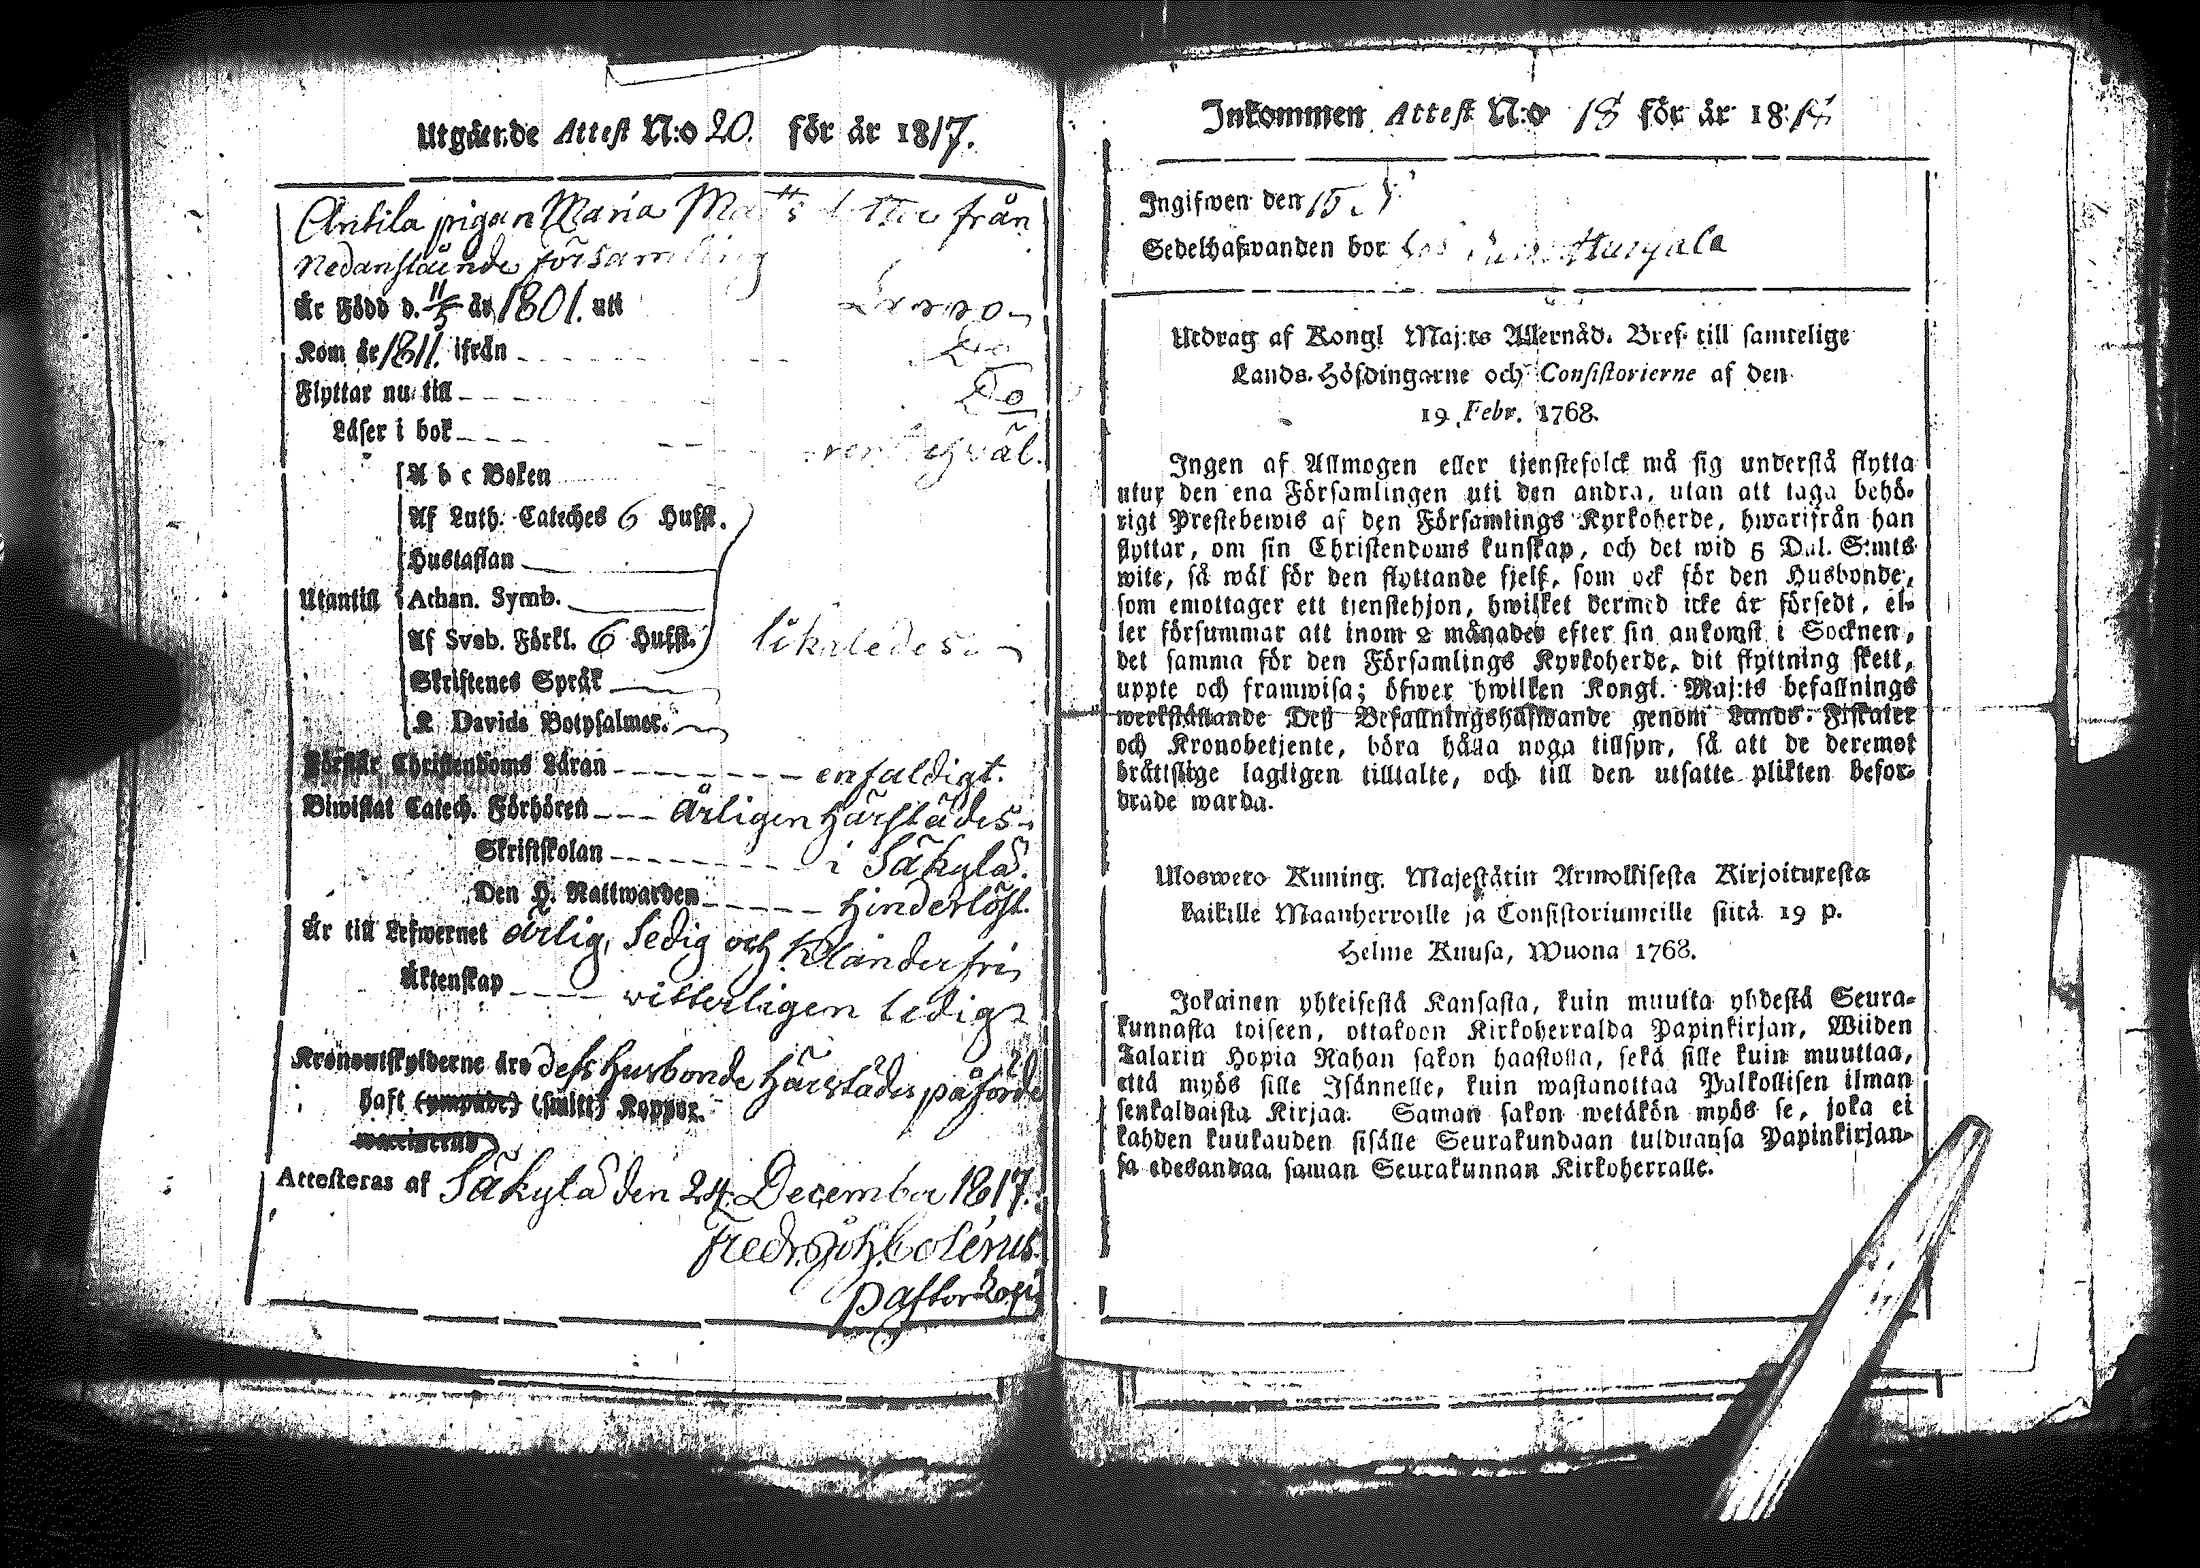 Utgående Attest N:o 20. för år 1817.
Antila pigan Maria Matts dotter från
Nedanstående församling
Är Född d. 11/5 år 1801. uti Lappo
Kom år 1811. ifrån Do
Flyttar nu till Do
Läser i bok väl.
A b c Boken
Af Luth. Cateches 6 Hufst.
Hustaflan
Utantill Athan. Symb.
Af Sveb. Förkl. 6 Hufst. likaledes
Skriftenes Språk
K. Davids Botpsalmer.
Förstår Christendoms Läran enfaldigt.
Biwistat Catech. Förhören årligen härstädes
Skriftskolan i Säkylä.
Den H. Nattwarden hinderlöst.
Är till Lefwernet ärlig, sedig och klanderfri
Äktenskap vitterligen ledig
Kronoutskylderne äro dess husbonde härstädes påförde
haft (ympade) (smitt) Koppor.
Attesteras af Säkylä den 24 December 1817.
Fredr. Joh. Polérus.
Pastor
Inkommen Attest N:o 18 för år 18
Ingifwen den 15
Sedelhafwanden bor
Utdrag af Kongl Maj:ts Allernåd. Bref till samtelige
Lands-Höfdingarne och Consistorierne af den
19 Febr. 1768.
Ingen af Allmogen eller tjenstefolck må sig understå flytta
utur den ena Församlingen uti den andra, utan att taga behö-
rigt Prestebewis af den Församlings Kyrkoherde, hwarifrån han
flyttar, om sin Christendoms kunskap, och det wid 5 Dal. S:mts
wite, så wäl för den flyttande sjelf, som ock för den Husbonde,
som emottager ett tjenstehjon, hwilket dermed icke är försedt, el-
ler försummar att inom 2 månader efter sin ankomst i Socknen,
det samma för den Församlings Kyrkoherde, dit flyttning skett,
uppte och framwisa; öfwer hwilken Kongl. Maj:ts befallnings
werkställande Dess Befallningshafwande genom Lands-Fiskaler
och Kronobetjente, böra hålla noga tillsyn, så att de deremot
bråttslige lagligen tilltalte, och till den utsatte plikten befor-
drade warda.
Ulosweto Kuning. Majestätin Armollisesta Kirjoituxesta
kaikille Maanherroille ja Consistoriumeille siitä 19 p.
Helme Kuusa, Wuona 1768.
Jokainen yhteisestä Kansasta, kuin muutta yhdestä Seura-
kunnasta toiseen, ottakoon Kirkoherralda Papinkirjan, Wiiden
Talarin Hopia Rahan sakon haastolla, sekä sille kuin muuttaa,
että myös sille Isännelle, kuin wastanottaa Palkollisen ilman
senkaldaista Kirjaa. Saman sakon wetäkön myös se, joka ei
kahden kuukauden sisälle Seurakundaan tulduansa Papinkirjan-
sa edesandaa saman Seurakunnan Kirkoherralle.